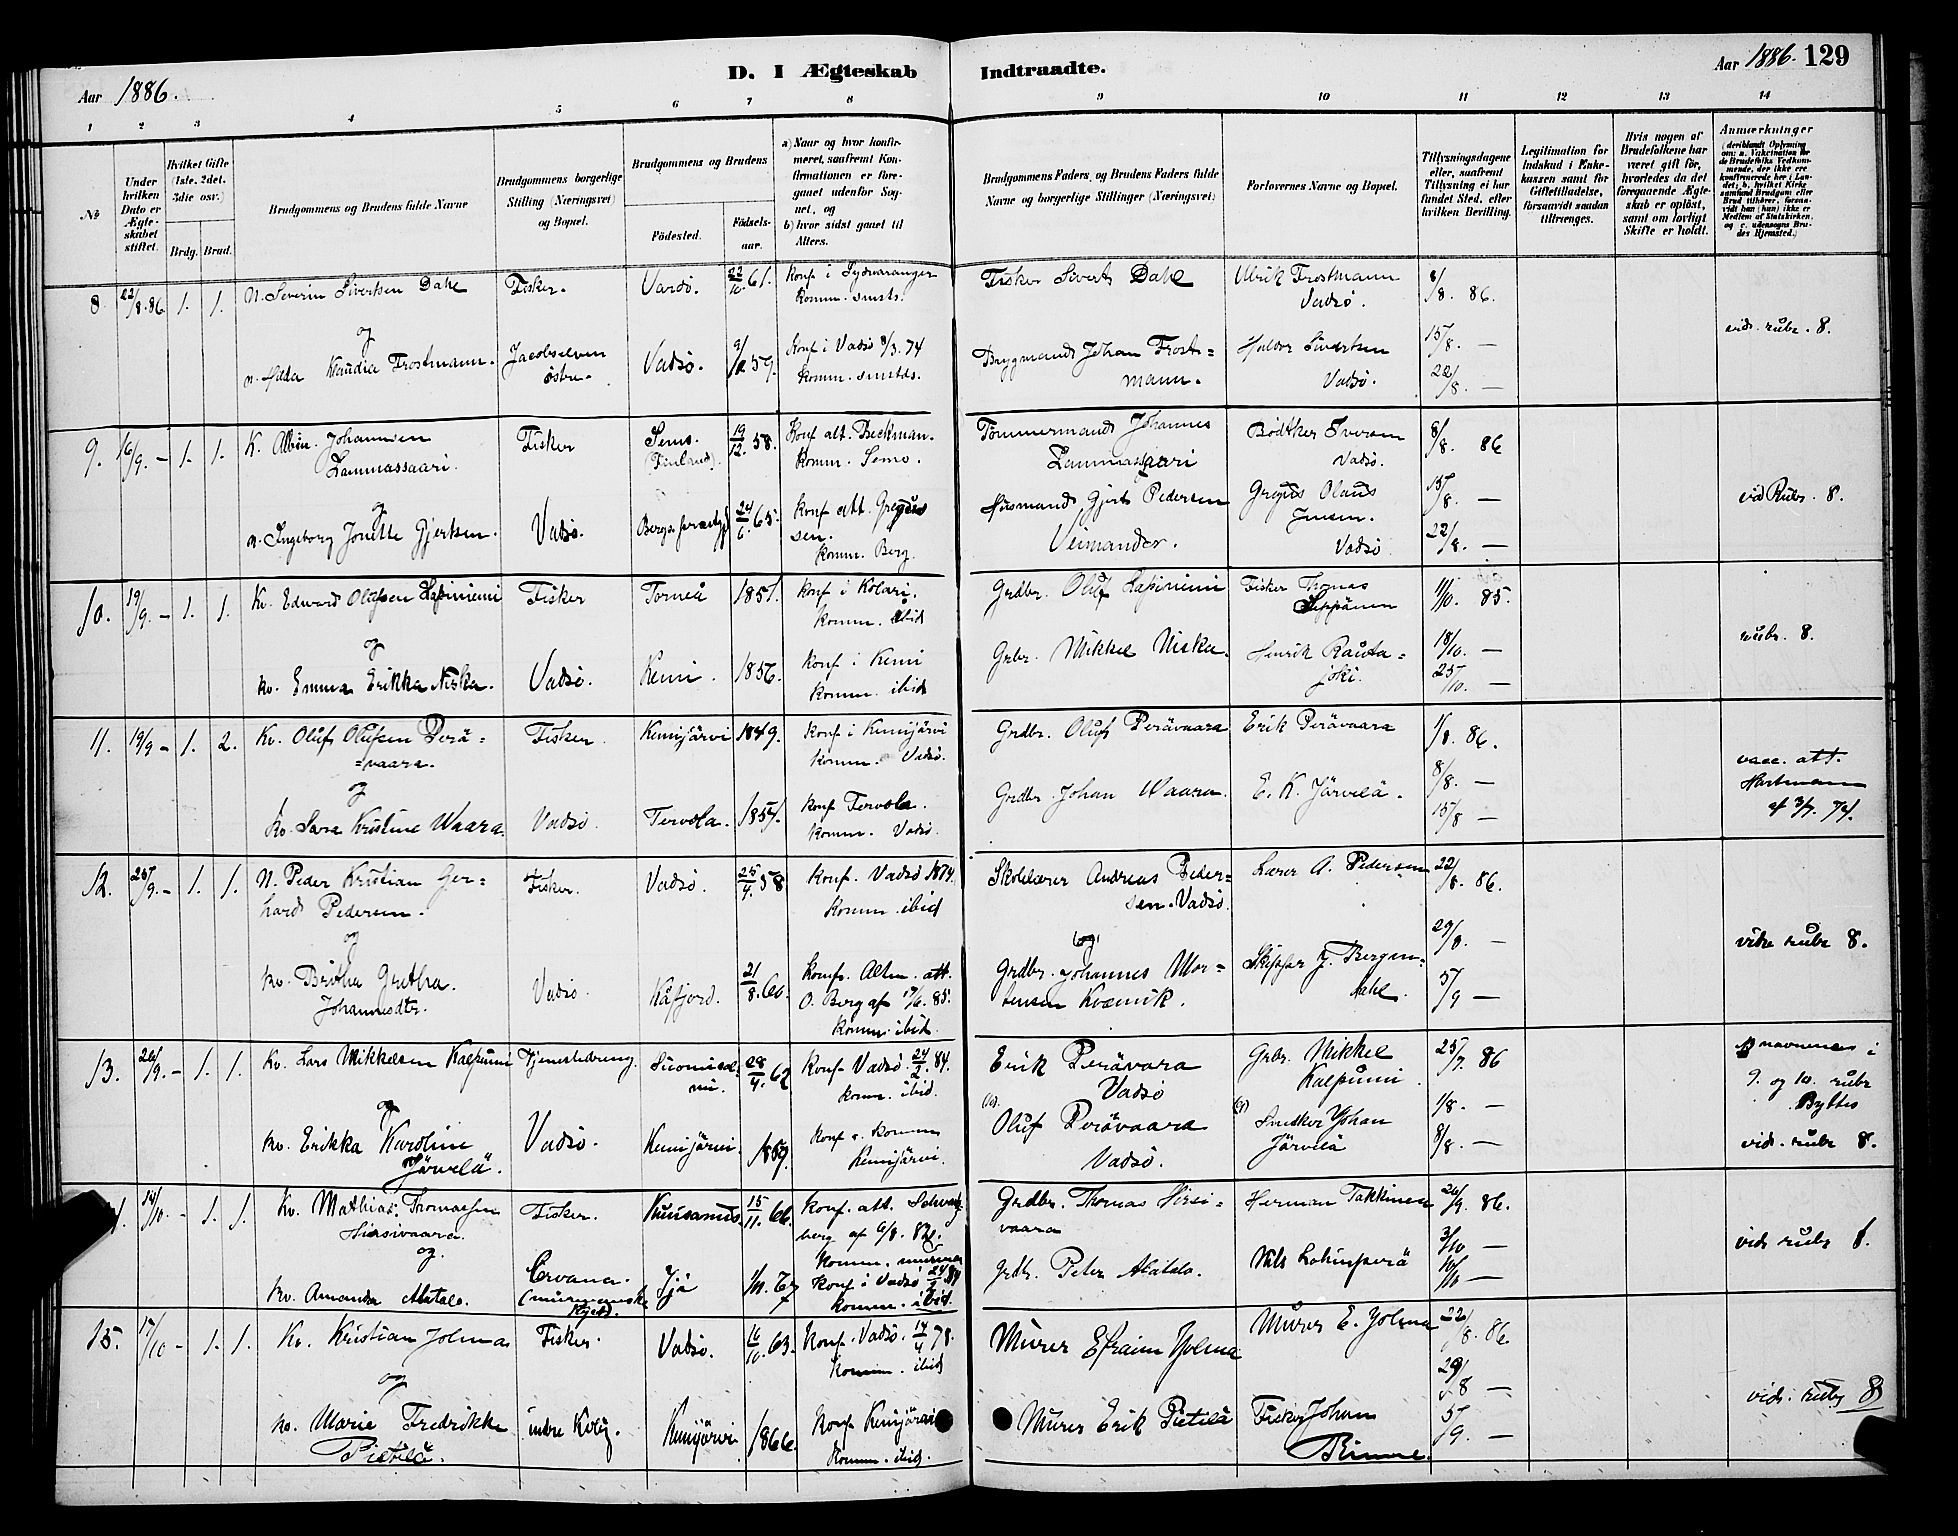 Aar 1886.
D. I Ægteskab
Indtraadte.
Aar 1886. 129
1 2 3 4 5 6 7 8 9 10 11 12 13 14
No
Under hvilken Dato er Ægteskabet stiftet.
Hvilket Gifte (1ste, 2det, 3die osv.)
Brdg. Brud.
Brudgommens og Brudens fulde Navne
Brudgommens borgerlige Stilling (Næringsvei) og Bopæl.
Brudgommens og Brudens
Fødested. Fødselsaar.
a) Naar og hvor konfirmeret, saafremt Konfirmationen er foregaaet udenfor Sognet, og
b) hvor sidst gaaet til Alters.
Brudgommens Faders, og Brudens Faders fulde Navne og borgerlige Stillinger (Næringsvei)
Forlovernes Navne og Bopæl.
Tillysningsdagene eller, saafremt Tillysning ei har fundet Sted, efter hvilken Bevilling.
Legitimation for Indskud i Enkekassen samt for Giftetilladelse, forsaavidt saadan tiltrænges.
Hvis nogen af Brudefolkene har været gift før, hvorledes da det foregaaende Ægteskab er opløst, samt om lovligt Skifte er holdt.
Anmærkninger
8. 22/8. 86 1. 1.
N. Severin Sivertsen Dahl
og
n. Hilda Klaudia Frostmann.
Fisker.
Jacobselven østre.
Vardø. 22/10. 61.
Vadsø. 59.
konf i Sydvaranger
komm. smsts.
konf i Vadsø 8/3. 74
komm. smstds.
Fisker Sivert Dahl
Brygmand Johan Frostmann.
Ulrik Frostmann
Vadsø.
Halvor Sivertsen
Vadsø.
8/8. 86.
15/8. —
22/8. —
vid. rubr. 8.
9. 16/9. — 1. 1.
K. Albin Johannsen
Lammassaari.
og
n. Ingeborg Jonette Gjertsen.
Fisker
Vadsø.
Simo. (Finland). 19/12. 58.
24/6. 65.
Konf att. Beckman.
komm. Simo.
konf att. Gregussen.
komm. Berg.
Tømmermand Johannes
Lammassaari
Husmand Gjert Pedersen
Veimander.
Bødtker Iversen
Vadsø.
Gregus Olaus
Jensen.
Vadsø
8/8. 86
15/8. —
22/8. —
vid Rubr. 8.
10. 19/9. — 1. 1.
Kv. Edward Olafsen Lapiniemi
og
kv. Emma Erikka Niska.
Fisker
Vadsø.
Torneå 1851.
Kemi. 1856.
konf i Kolari.
komm. ibid
konf i Kemi
komm. ibid
Grdbr. Oluf Lapiniemi
Grbr. Mikkel Niska.
Fisker Thomas
Seppänen
Henrik Rautajoki.
11/10. 85.
18/10. —
25/10. —
rubr. 8.
11. 19/9 — 1. 2.
Kv. Oluf Olufsen Perävaara.
og
kv. Sara Kristine Waara.
Fisker.
Vadsø.
Kemijärvi 1849.
Tervola. 1851.
konf i Kemijärvi
komm. Vadsø.
konf Tervola.
komm. Vadsø.
Grdbr. Oluf Perävaara
Grdbr. Johan Waara.
Erik Perävaara
E. K. Järvelä.
1/8. 86.
8/8. —
15/8 —
vacc. att.
Hartmann
af 3/7. 74.
12. 25/9. — 1. 1.
N. Peder Kristian Gerhard Pedersen.
og
kv. Britha Gretha.
Johannesdtr.
Fisker.
Vadsø
Vadsø. 25/4. 58
Kåfjord. 21/8. 60.
konf. Vadsø 1874.
komm. ibid
konf. Alten. att.
O. Berg af 17/6. 85.
komm. ibid.
Skolelærer Andreas Pedersen. Vadsø.
og
Grdbr. Johannes Mortensen Kvænvik.
Lærer A. Pedersen
Skipper J. Bergendahl.
22/8. 86.
29/8. —
5/9 —
vide rubr 8.
13. 26/9. — 1. 1.
Kv. Lars Mikkelsen Kalpunni
og
kv. Erikka Karoline
Järvelä.
Hjemstedreng.
Vadsø.
28/4. 62
Kemijärvi. 1859.
Konf Vadsø 24/2. 84.
komm. ibid.
konf o. komm
Kemijärvi.
Erik Perävara
Vadsø
Oluf Perävaara
Vadsø.
Grbr. Mikkel
Kalpunni
Snedker Johan
Järvelä
25/7. 86
1/8. —
8/8. —
navnene i
9. og 10. rubr
Byttes
vid. rubr 8.
14/10. — 1. 1.
Kv. Mathias Thomassen
Hirsivaara.
og.
kv. Amanda Alatalo.
Fisker.
Ervana.
(murmanske Kyst).
Kuusamo. 15/11. 66.
Ijå 67
konf. att. Schwartzberg af 9/8. 82.
komm.
konf i Vadsø
komm. ibid.
Grdbr. Thomas Hirsivaara
Grdb. Peter Alatalo.
Herman Takkinen
Nils Lohiniperä
26/9. 86.
3/10 —
10/10 —
vid. rubr 8.
15. 17/10 — 1. 1.
Kv. Kristian Jolma
og
kv. Marie Fredrikke
Pietilä.
Fisker.
indre Kvby.
Vadsø. 16/10. 63.
Kemijärvi 1866
Konf. Vadsø. 14/4 78.
komm. ibid
konf Kemijärvi
komm. ibid.
Murer Efraim Jolma
Murer Erik Pietilä
Murer E. Jolma
Fisker Johan
22/8. 86.
29/8 —
5/9. —
vid. rubr 8